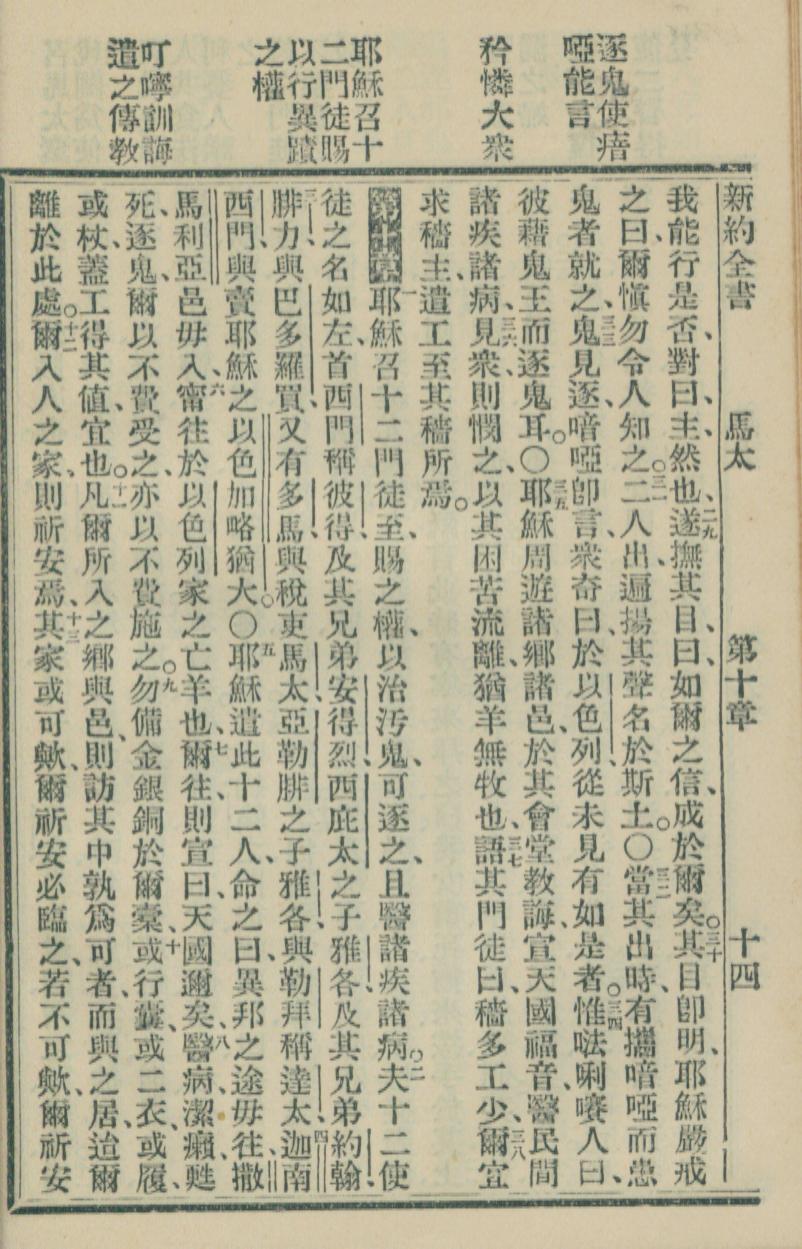 逐鬼使瘖
啞能言
矜憐大衆
耶穌召十
二門徒賜
以行異蹟
之權
叮嚀訓誨
遣之傳教
新約全書 馬太 第十章 十四
我能行是否、對曰、主、然也、二九遂撫其目、曰、如爾之信、成於爾矣。三十其目卽明、耶穌嚴戒
之曰、爾愼勿令人知之。三一二人出、遍揚其聲名於斯土。○三二當其出時、有攜喑啞而患
鬼者就之、三三鬼見逐、喑啞卽言、衆奇曰、於以色列、從未見有如是者。三四惟㗙唎㘔人曰、
彼藉鬼王而逐鬼耳。○三五耶穌周遊諸鄉諸邑、於其會堂教誨、宣天國福音、醫民間
諸疾諸病、三六見衆則憫之、以其困苦流離、猶羊無牧也、三七語其門徒曰、穡多工少、三八爾宜
求穡主、遣工至其穡所焉。
第十章 一耶穌召十二門徒至、賜之權、以治汚鬼、可逐之、且醫諸疾諸病。二夫十二使
徒之名如左、首西門稱彼得、及其兄弟安得烈、西庇太之子雅各、及其兄弟約翰、
三腓力與巴多羅買、又有多馬、與稅吏馬太、亞勒腓之子雅各、與勒拜稱達太、四迦南
西門、與賣耶穌之以色加略猶大。○五耶穌遣此十二人、命之曰、異邦之途毋往、撒
馬利亞邑毋入、六甯往於以色列家之亡羊也、七爾往、則宣曰、天國邇矣、八醫病、潔癩、甦
死、逐鬼、爾以不費受之、亦以不費施之。九勿備金銀銅於爾橐、十或行囊、或二衣、或履、
或杖、蓋工得其値、宜也。十一凡爾所入之鄉與邑、則訪其中孰爲可者、而與之居、迨爾
離於此處。十二爾入人之家、則祈安焉、十三其家或可歟、爾祈安必臨之、若不可歟、爾祈安